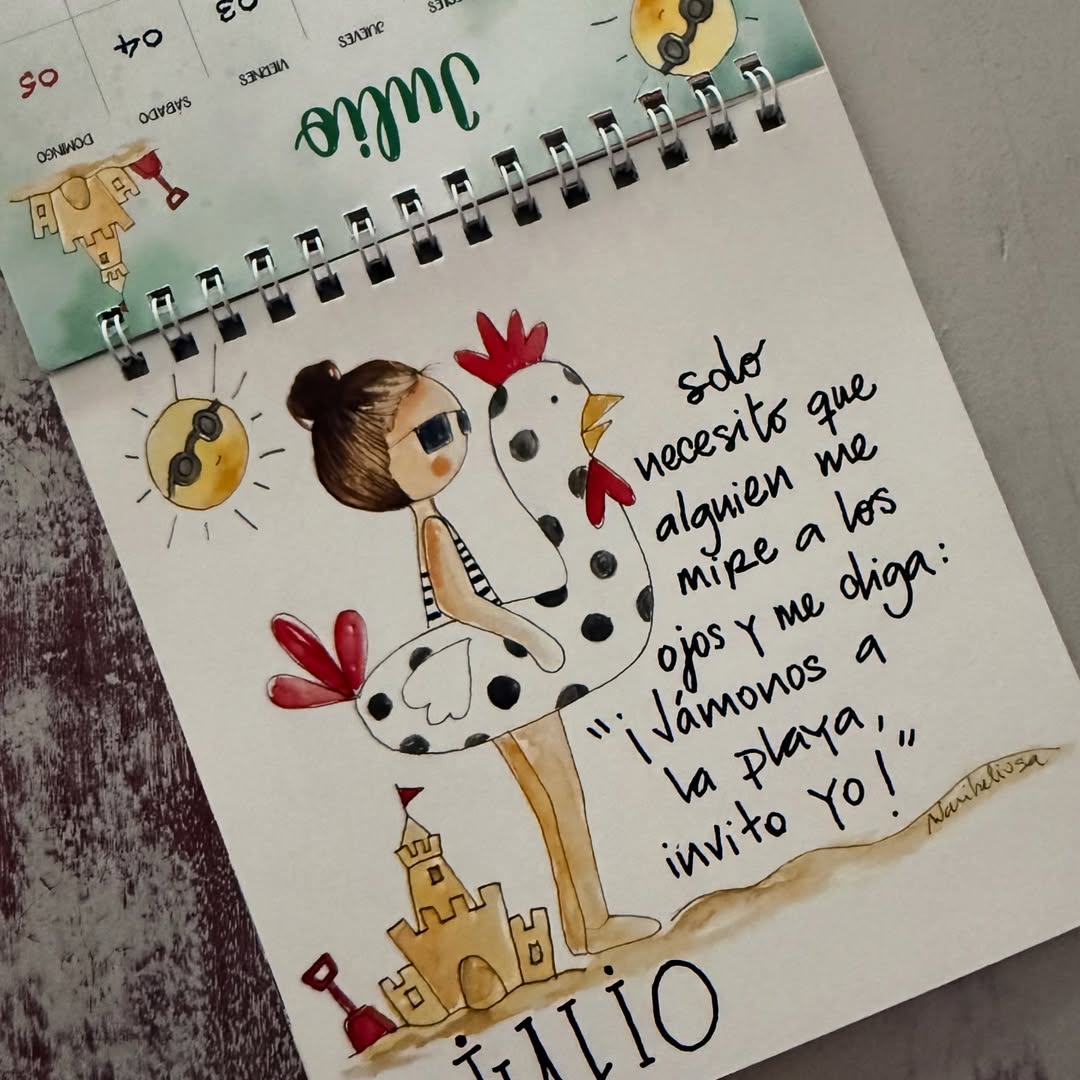 Julio
VIERNES
JUEVES
SÁBADO
DOMINGO
03
04
05
solo
necesito que
alguien me
mire a los
ojos y me diga:
"¡Vámonos a
la playa,
invito yo!"
Maribeliusa
JULIO